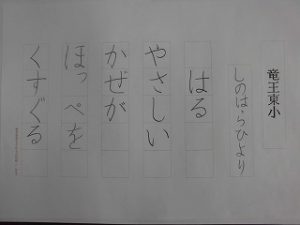 竜王東小
しのはらひより
はる
やさしい
かぜが
ほっぺを
くすぐる